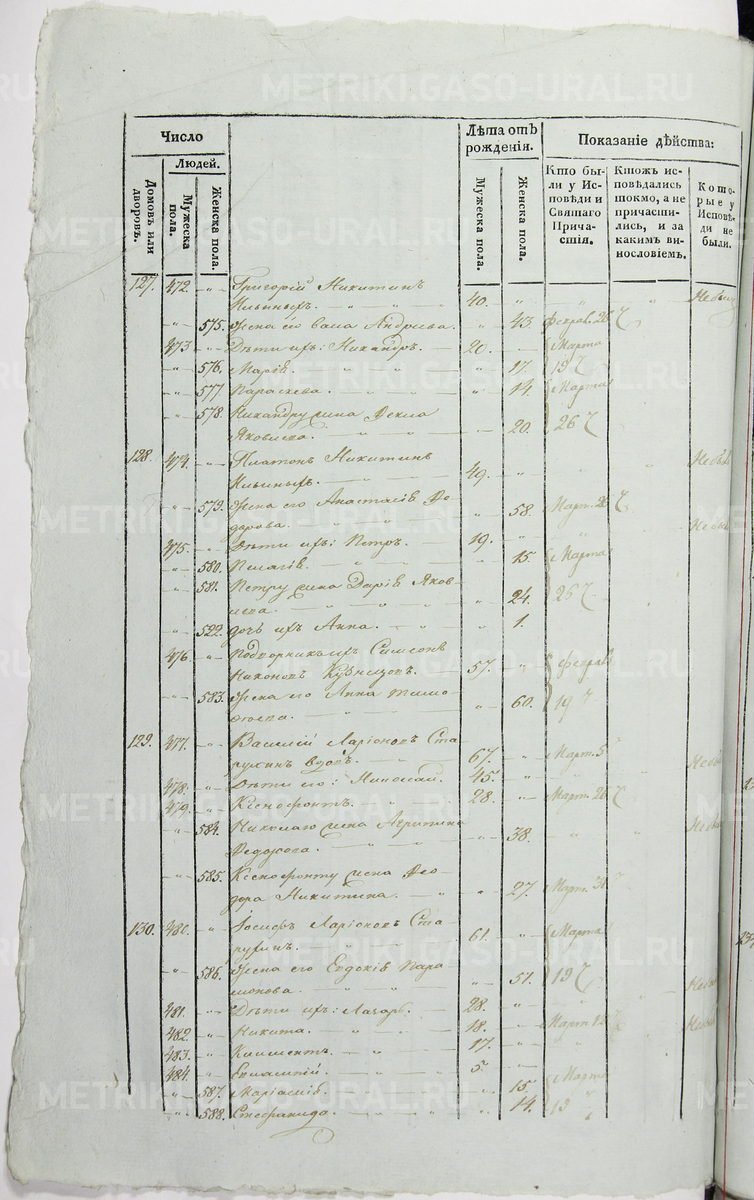 METRIKI.GASO-URAL.RU
Число
Лѣта отъ рожденія.
Показаніе дѣйства:
Людей.
Домовъ или дворовъ.
Мужеска пола.
Женска пола.
Мужеска пола.
Женска пола.
Кто были у Исповѣди и Святаго Причастія.
Ктожъ исповѣдались токмо, а не причастились, и за какимъ винословіемъ.
Которые у Исповѣди не были.
127. 472. Григорій Никитинъ
Ильиныхъ. 40.
575. Жена его Андреева. 43. Феврал. 26
473 Дѣти ихъ: Никандръ. 20. Марта
576. Марія. 17. 19
577 Параскева. 14. Марта
578. Никандру жена Фекла
Яковлева. 20. 26
128. 474. Платонъ Никитинъ
Ильиныхъ. 49.
579. Жена его Анастасія Фе-
дорова. 58. Март. 26
475. Дѣти ихъ: Петръ. 19.
580. Пелагія. 15. Марта
581. Петру жена Дарія Яков
лева. 24. 26
522. дочь ихъ Анна. 1.
476. Подворникъ ихъ Симеонъ
Никоновъ Кузнецовъ. 57. Феврал
583. Жена его Анна Тимо-
фѣева. 60. 19
129. 477. Василій Ларіоновъ Ста
рухинъ вдовъ. 67. Март. 5
478. Дѣти его: Николай. 45.
479. Ксенофонтъ. 28. Март. 26
584. Николаю жена Агрипина
Федорова. 38.
585. Ксенофонту жена Фео-
дора Никитина. 27. Март.
130. 480. Іосифъ Ларіоновъ Ста-
рухинъ. 61. Марта
586. Жена его Евдокія Пара-
монова. 51. 19
481. Дѣти ихъ: Лазарь. 28.
482. Никита. 18. Март.
483. Климентъ. 17.
484. Евлампій. 5
587. Маріамія. 15. Март
588. Стефанида. 14. 19